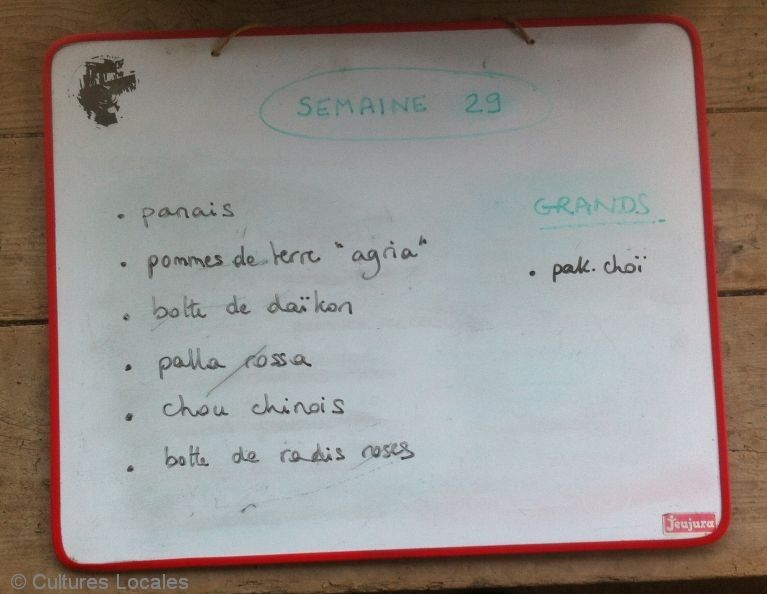 SEMAINE 29
• panais
• pommes de terre "agria"
• botte de daïkon
• palla rossa
• chou chinois
• botte de radis roses
GRANDS
• pak-choï
jeujura
© Cultures Locales